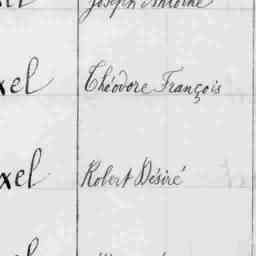 Joseph Antoine
xel Théodore François
xel Robert Désiré